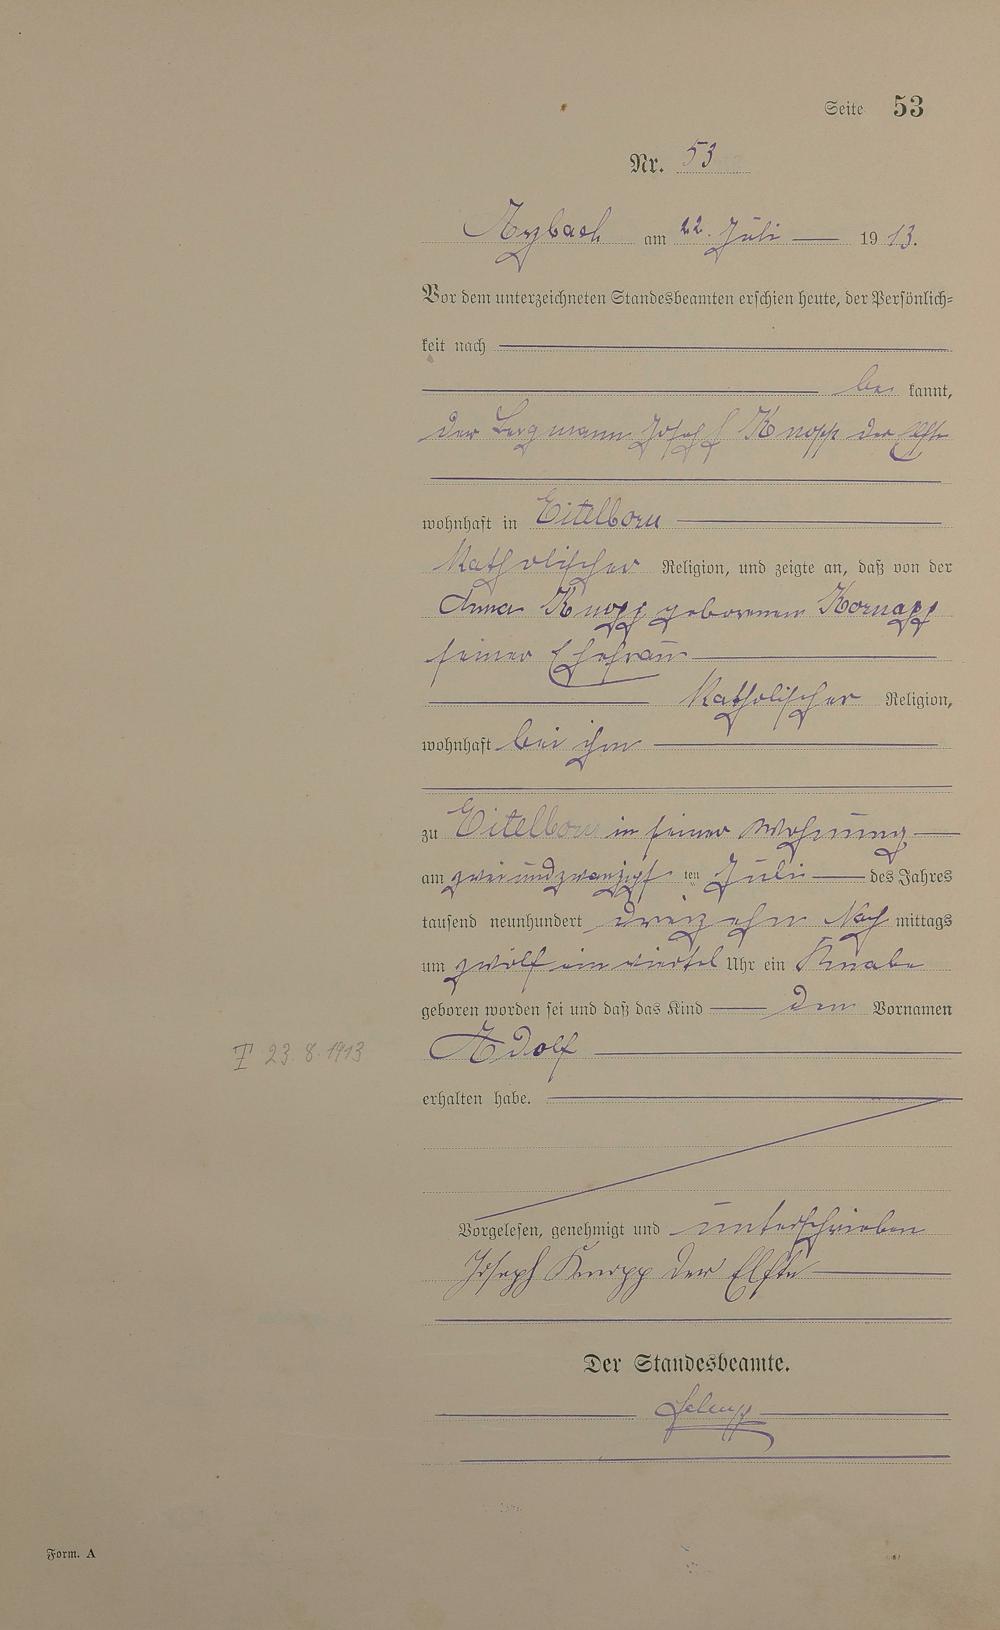 Seite 53
Nr. 53
Arzbach am 22. Juli 1913.
Vor dem unterzeichneten Standesbeamten erschien heute, der Persönlich=
keit nach
be kannt,
der Bergmann Joseph Knopp der Elfte
wohnhaft in Eitelborn
katholischer Religion, und zeigte an, daß von der
Anna Knopp geborenen
seiner Ehefrau
katholischer Religion,
wohnhaft bei ihm
zu Eitelborn in seiner Wohnung
am zweiundzwanzigsten Juli des Jahres
tausend neunhundert dreizehn Nachmittags
um zwölf ein viertel Uhr ein Knabe
geboren worden sei und daß das Kind den Vornamen
Adolf
† 23.8.1913
erhalten habe.
Vorgelesen, genehmigt und unterschrieben
Joseph Knopp der Elfte
Der Standesbeamte.
Form. A